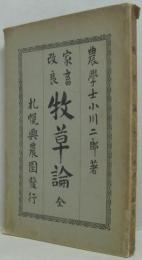 農學士小川二郎著
家畜改良
牧草論 全
札幌興農園發行